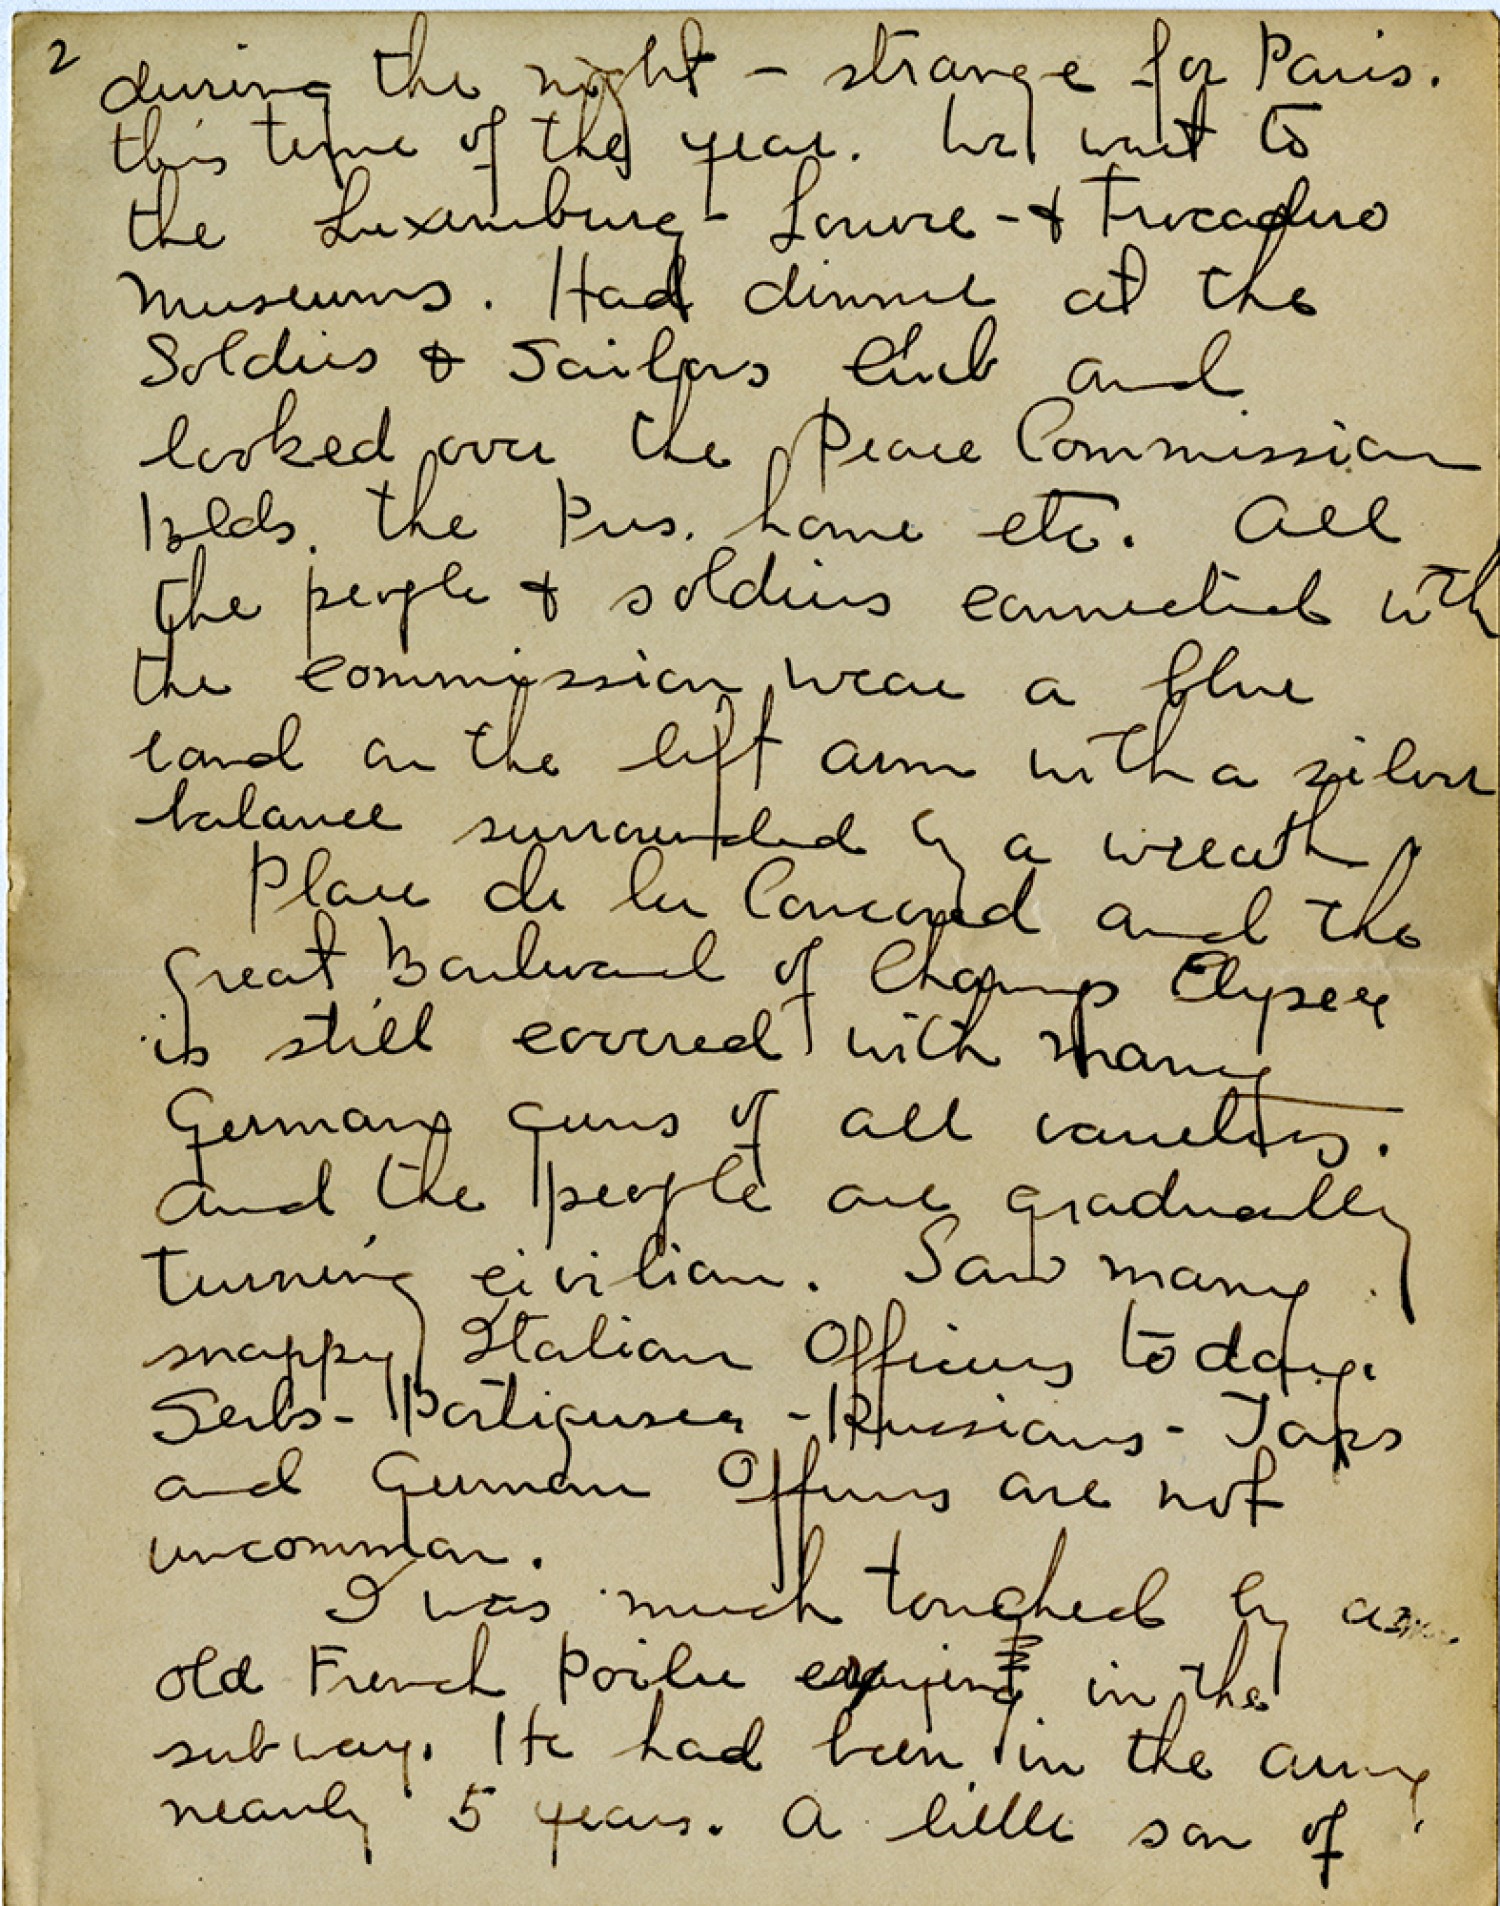 2
during the night - strange for Paris.
this time of the year. We went to
the Luxemburg - Louvre - & Trocadero
Museums. Had dinner at the
Soldiers & Sailors Club and
looked over the Peace Commission
Blds. the Pres. home etc. All
the people & soldiers connected with
the commission wear a blue
band on the left arm with a silver
balance surrounded by a wreath.
Place de la Concord and the
great Boulevard of Champs Elysee
is still covered with many
German guns of all varieties.
and the people are gradually
turning civilian. Saw many
snappy Italian Officers today.
Serbs - Portiguses - Russians - Japs
and German Officers are not
uncommon.
I was much touched by an
old French Poilu crying in the
subway. He had been in the army
nearly 5 years. A little son of